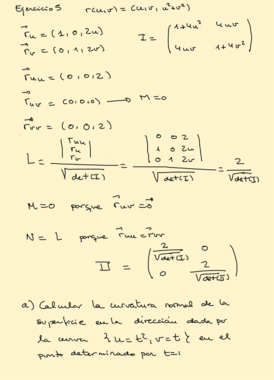 Ejercicio 5   r(u,v) = (u, v, u²+v²)
r⃗u = (1, 0, 2u)   I = ( 1+4u²  4uv
r⃗v = (0, 1, 2v)   4uv  1+4v² )
r⃗uu = (0, 0, 2)
r⃗uv = (0,0,0) → M=0
r⃗vv = (0, 0, 2)
L = | ruu ru rv | / √det(I) = | 0 0 2  1 0 2u  0 1 2v | / √det(I) = 2 / √det(I)
M=0 porque r⃗uv = 0⃗
N = L porque r⃗uu = r⃗vv
II = ( 2/√det(I)  0
0  2/√det(I) )
a) Calcular la curvatura normal de la
superficie en la dirección dada por
la curva {u=t², v=t} en el
punto determinado por t=1